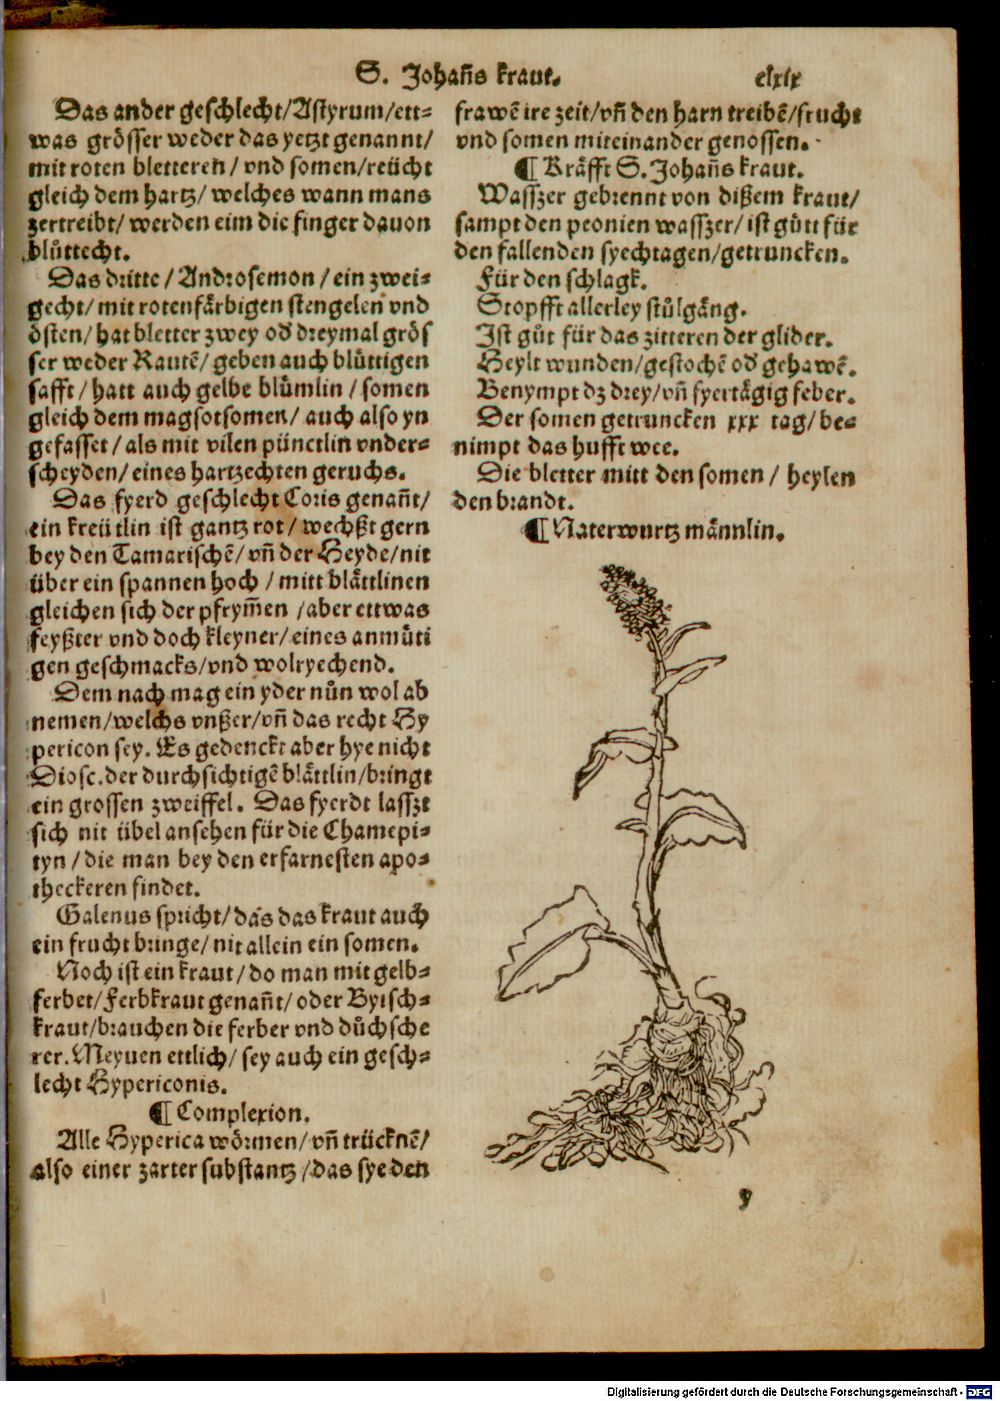 S. Johañs kraut.
clxix
Das ander geschlecht/Astyrum/ett⸗
was grösser weder das yetzt genannt/
mit roten bletteren/ vnd somen/reücht
gleich dem hartz/ welches wann mans
zertreibt/ werden eim die finger dauon
blůttecht.
Das dritte/Androsemon/ein zwei⸗
gecht/mit rotenfärbigen stengelen vnd
östen/hat bletter zwey od dreymal grös
ser weder Rautē/geben auch blůttigen
safft/hatt auch gelbe blůmlin/somen
gleich dem magsotsomen/ auch also yn
gefasset/als mit vilen pünctlin vnder⸗
scheyden/eines hartzechten geruchs.
Das fyerd geschlecht Coris genañt/
ein kreütlin ist gantz rot/wechßt gern
bey den Tamarischē/vñ der Heyde/nit
über ein spannen hoch/mitt blättlinen
gleichen sich der pfrym̄en/aber ettwas
feyßter vnd doch kleyner/eines anmůti
gen geschmacks/vnd wolryechend.
Dem nach mag ein yder nůn wol ab
nemen/welchs vnßer/vñ das recht Hy
pericon sey. Es gedenckt aber hye nicht
Diosc. der durchsichtigē blättlin/bringt
ein grossen zweiffel. Das fyerdt lasszt
sich nit übel ansehen für die Chamepi⸗
tyn/die man bey den erfarnesten apo⸗
theckeren findet.
Galenus spricht/das das kraut auch
ein frucht bringe/nit allein ein somen.
Noch ist ein kraut/do man mit gelb⸗
ferbet/Ferbkraut genañt/oder Bytsch⸗
kraut/brauchen die ferber vnd důchsche
rer. Meynen ettlich/sey auch ein gesch⸗
lecht Hypericonis.
¶ Complexion.
Alle Hyperica wörmen/vñ trücknē/
also einer zarter substantz/das sye den
frawē ire zeit/vñ den harn treibē/frucht
vnd somen miteinander genossen.
¶ Kräfft S. Johañs kraut.
Wasszer gebrennt von dißem kraut/
sampt den peonien wasszer/ist gůtt für
den fallenden syechtagen/getruncken.
Für den schlagk.
Stopfft allerley stůlgäng.
Ist gůt für das zitteren der glider.
Heylt wunden/gestochē od gehawē.
Benympt dz drey/vñ fyertägig feber.
Der somen getruncken xxx tag/be⸗
nimpt das hufft wee.
Die bletter mitt den somen/ heylen
den brandt.
¶ Naterwurtz männlin.
y
Digitalisierung gefördert durch die Deutsche Forschungsgemeinschaft - DFG